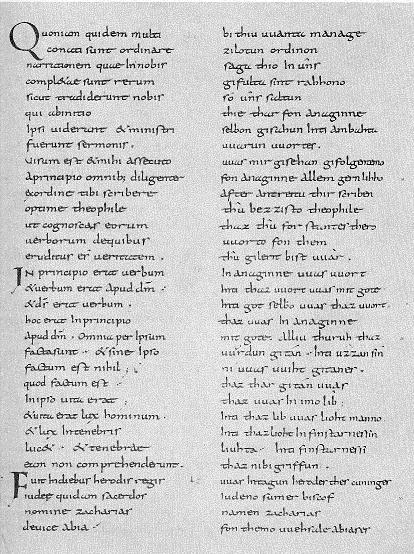 Quoniam quidem multi
conati sunt ordinare
narrationem quae Innobis
compl&ae sunt rerum
sicut tradiderunt nobis
qui abinitio
Ipsi uiderunt &ministri
fuerunt sermonis.
Uisum est &mihi assecuto
Aprincipio omnib; diligenter
exordine tibi scribere
optime theophile
ut cognoscas eorum
uerborum dequibus
eruditus es ueritatem.
IN principio erat uerbum
&uerbum erat apud dm̄.
&dš erat uerbum.
hoc erat Inprincipio
apud dm̄. Omnia per Ipsum
factasunt. &sine Ipso
factum est nihil;
quod factum est.
Inipso uita erat;
&uita erat lux hominum.
&lux Intenebris
luc&. &tenebrae
eam non comprehenderunt.
Fuit Indiebus herodis regis
iudeę quidam sacerdos
nomine zacharias
deuice abia
bithiu uuanta manage
zilotun ordinon
saga thio In uns
gifulta sint rahhono
so uns saltun
thie thar fon anaginne
selbon gisahun Inti ambahta
uuarun uuortes.
uuas mir gisehan gifolgentemo
fon anaginne allem gernlihho
After antreitu thir scriben
thu bezzisto theophile
thaz thu forstantes thero
uuorto fon them
thu gilerit bist uuar.
In anaginne uuas uuort
Inti thaz uuort uuas mit gote
Inti got selbo uuas thaz uuort.
thaz uuas In anaginne
mit gote. alliu thuruh thaz
uuurdun gitan. Inti uzzan sin
ni uuas uuiht gitanes.
thaz thar gitan uuas
thaz uuas In imo lib;
Inti thaz lib uuas lioht manno.
Inti thaz lioht In finstarnessin
liuhta. Inti finstarnessi
thaz nibigriffun.
uuas Intagun herodes thes cuninges
Iudeno sumer biscof
namen zacharias
fon themo uuehsale abiases